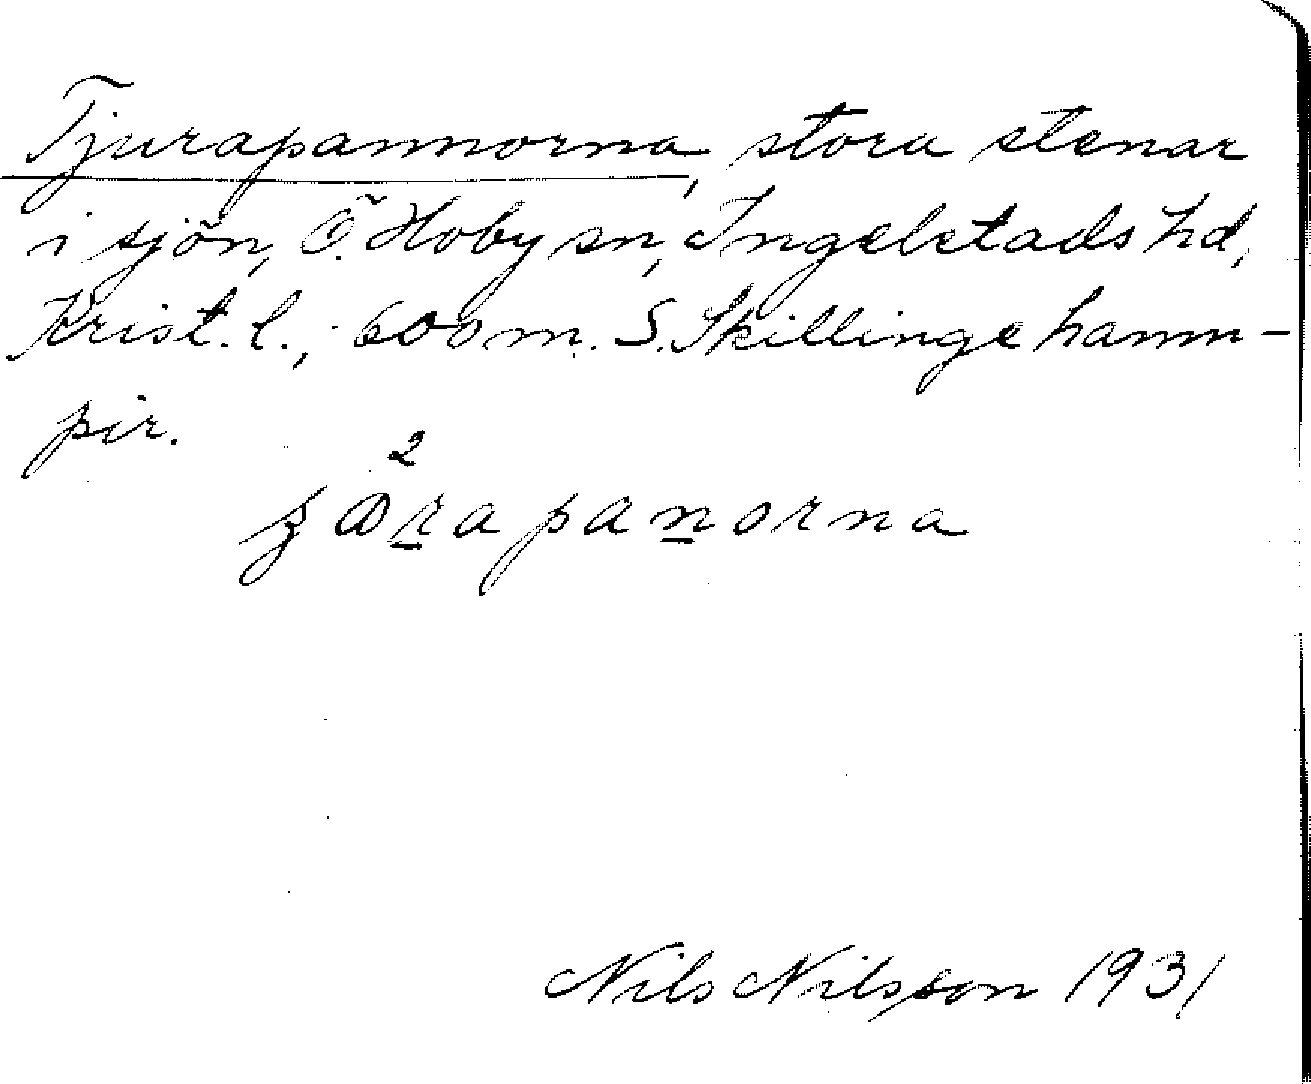 Tjurapannorna, stora stenar
i sjön, Ö. Hoby sn, Ingelstads hd,
Krist. l., 600 m. S. Skillinge hamn-
pir.
2
rapanorna
Nils Nilsson 1931